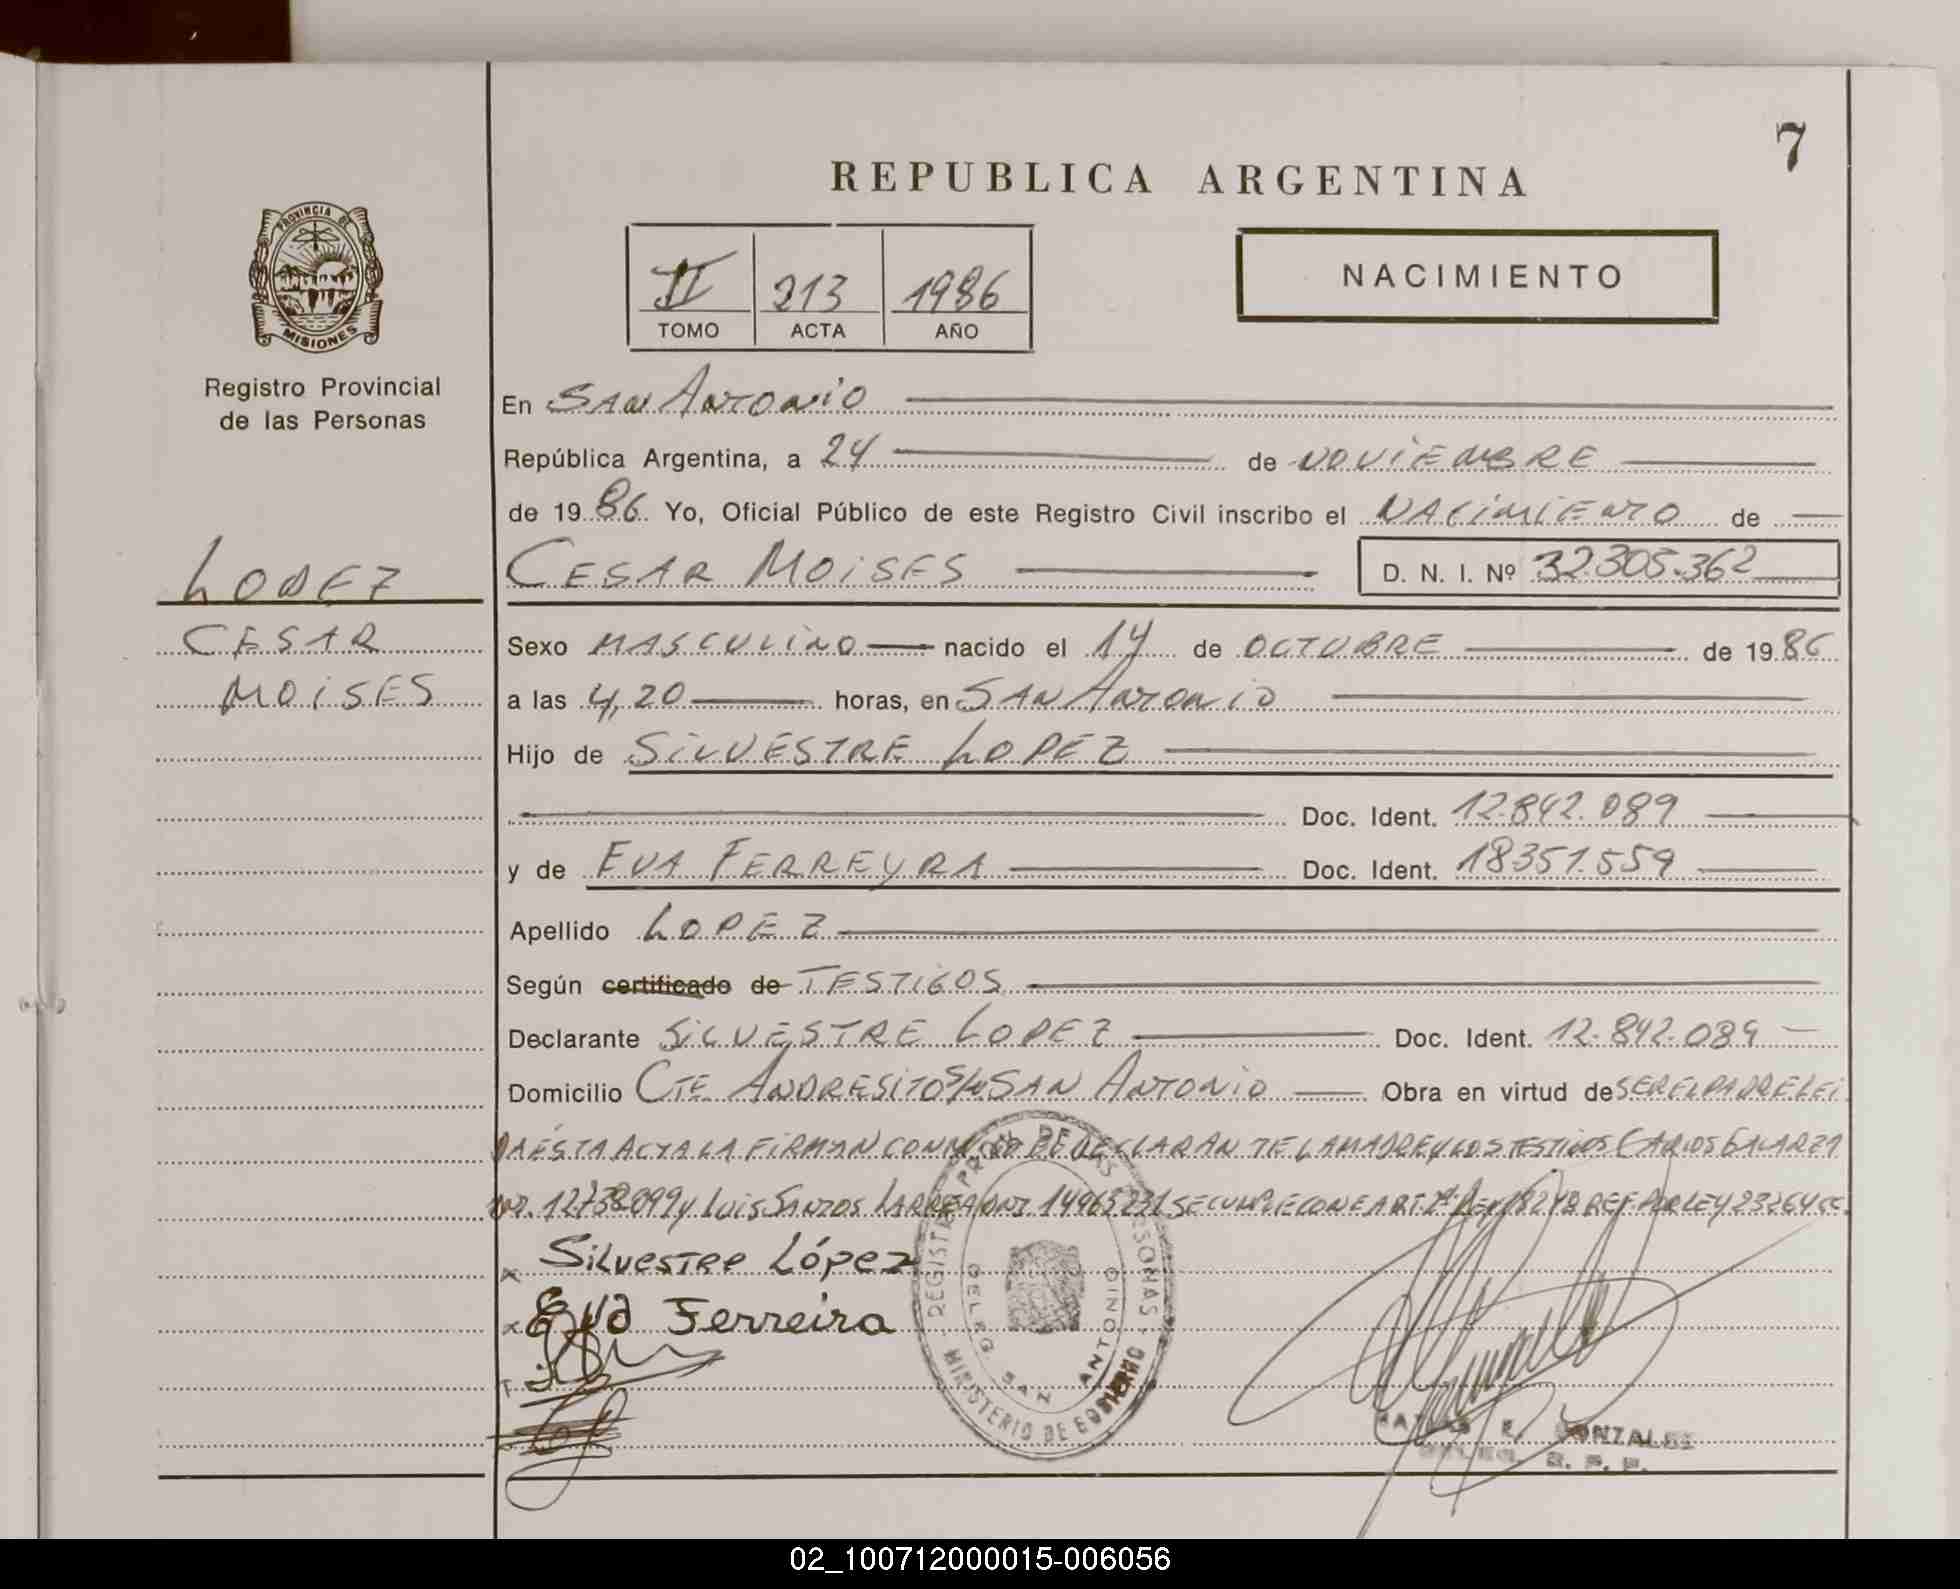 7
REPUBLICA ARGENTINA
PROVINCIA DE
MISIONES
Registro Provincial
de las Personas
II 213 1986
TOMO ACTA AÑO
NACIMIENTO
En SAN ANTONIO
República Argentina, a 24 de NOVIEMBRE
de 1986 Yo, Oficial Público de este Registro Civil inscribo el NACIMIENTO de
LOPEZ
CESAR MOISES D. N. I. Nº 32.305.362
CESAR
MOISES
Sexo MASCULINO nacido el 14 de OCTUBRE de 1986
a las 4,20 horas, en SAN ANTONIO
Hijo de SILVESTRE LOPEZ
Doc. Ident. 12.842.089
y de EVA FERREYRA Doc. Ident. 18351.559
Apellido LOPEZ
Según certificado de TESTIGOS
Declarante SILVESTRE LOPEZ Doc. Ident. 12.842.089
Domicilio CTE. ANDRESITO S/N SAN ANTONIO Obra en virtud de SER EL PADRE LEI
DA ÉSTA ACTA LA FIRMAN CONMIGO EL DECLARANTE LA MADRE Y LOS TESTIGOS CARLOS GALARZA
Y LUIS SANTOS LARREA DNI. 14963231 SE CUMPLE CON EL ART. LEY 18248 REF. POR LEY 23264
Silvestre López
Eva Ferreira
REGISTRO PROV. DE LAS PERSONAS
DELEG. SAN ANTONIO
MINISTERIO DE GOBIERNO
E. GONZALES
R. P. P.
02_100712000015-006056